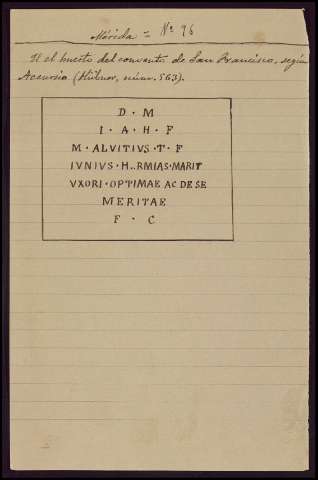 Mérida = Nº 96
el huerto del convento de San Francisco, según
Accursio (Hübner, núm. 563).
D · M
I · A · H · F
M · ALVITIVS · T · F
IVNIVS · H..RMIAS · MARIT
VXORI · OPTIMAE AC DE SE
MERITAE
F · C